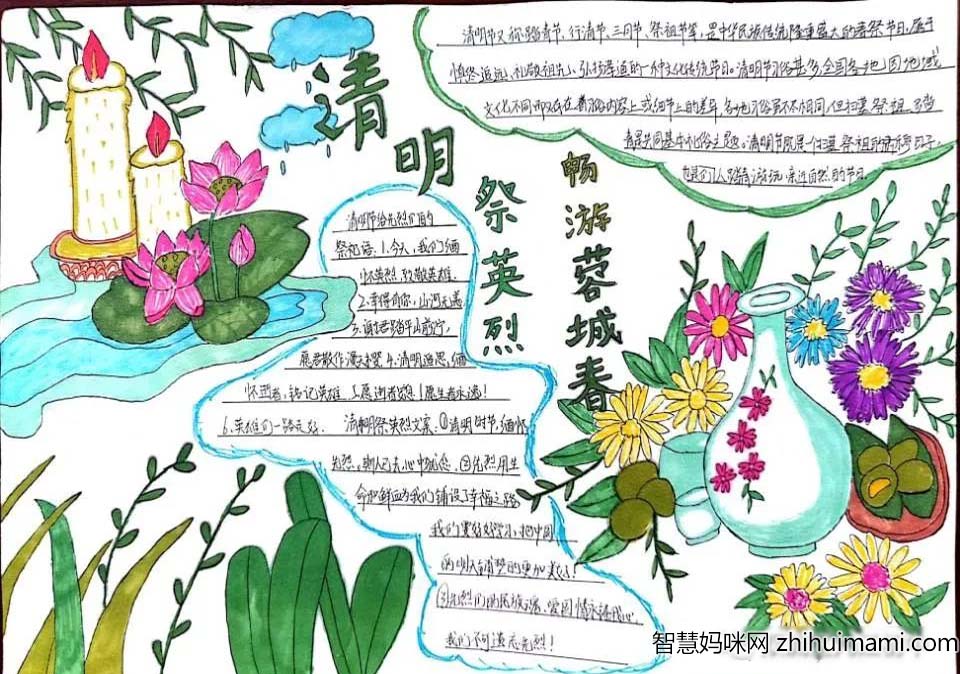 清明
祭英烈
畅游蓉城春
清明节又称踏青节、行清节、三月节、祭祖节等，是中华民族传统隆重盛大的春祭节日，属于
慎终追远、礼敬祖先、弘扬孝道的一种文化传统节日。清明节习俗甚多，全国各地因地域
文化不同而又存在着习俗内容上或细节上的差异，各地习俗虽不相同，但扫墓祭祖、踏
青是共同基本礼俗主题。清明节既是一个扫墓祭祖的肃穆日子，
也是们人踏青游玩、亲近自然的节日
清明节给先烈们的
祭祀语：1.今人，我们缅
怀英烈，致敬英雄.
2.幸得有你，山河无恙
3.
愿君散作漫天 4.清明追思，缅
怀逝者，铭记英雄. 5.愿逝者安息！愿生者永远！
6.英雄们一路走好. 清明祭英烈文案：①清明时节，缅怀
先烈，斯人已去心中犹念. ②先烈用生
命和鲜血为我们铺设了幸福之路
我们要好好学习，把中国
的明天建的更加美好！
③先烈们的民族之魂、爱国情永记我心，
我们不可遗忘先烈！
智慧妈咪网 zhihuimami.com